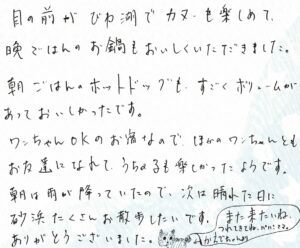 目の前がびわ湖でカヌーも楽しめて、
晩ごはんのお鍋もおいしくいただきました。
朝ごはんのホットドッグも、すごくボリュームが
あっておいしかったです。
ワンちゃんOKのお宿なので、ほかのワンちゃんとも
お友達になれて、うちの子も楽しかったようです。
朝は雨が降っていたので、次は晴れた日に
砂浜たくさんお散歩したいです。
ありがとうございました。
またまたいね。
つれてきてね。